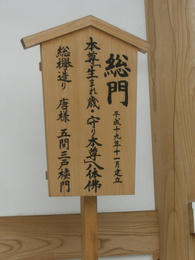 総門
平成十九年十一月建立
本尊「生まれ歳・守り本尊」八体佛
総欅造り 唐様 五間三戸楼門